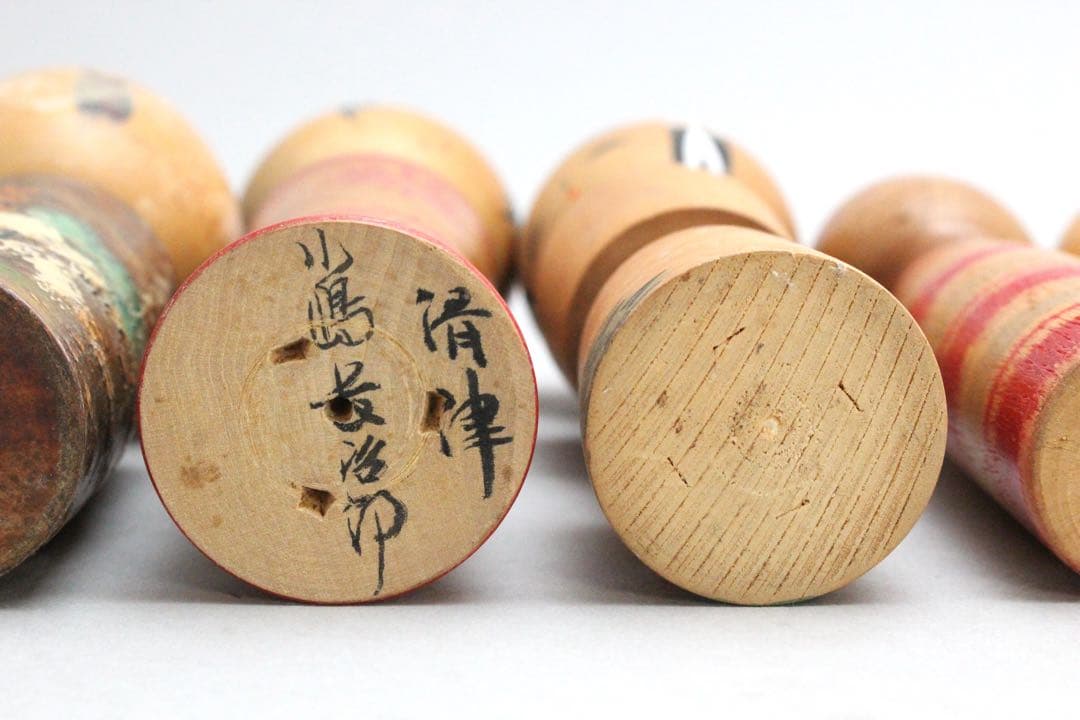 滑津
小島長治郎